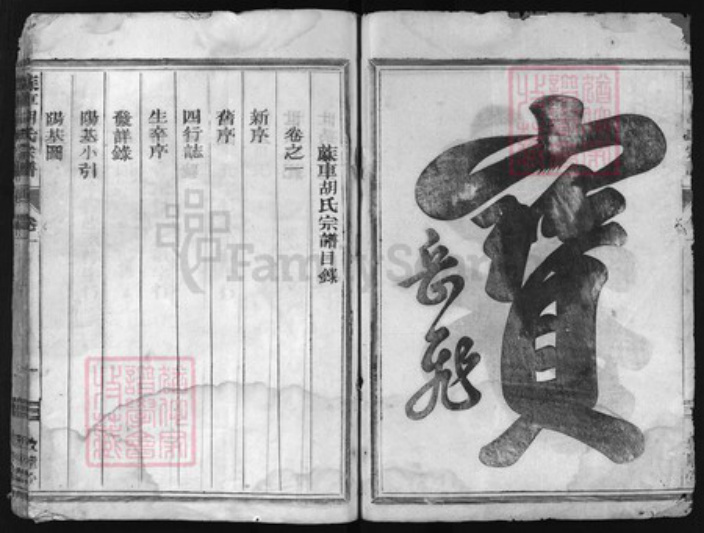 寶
岳飛
蔴車胡氏宗譜目錄
卷之一
新序
舊序
四行誌
生卒序
發詳錄
陽基小引
陽基圖
蔴車胡氏宗譜
卷一
FamilySearch